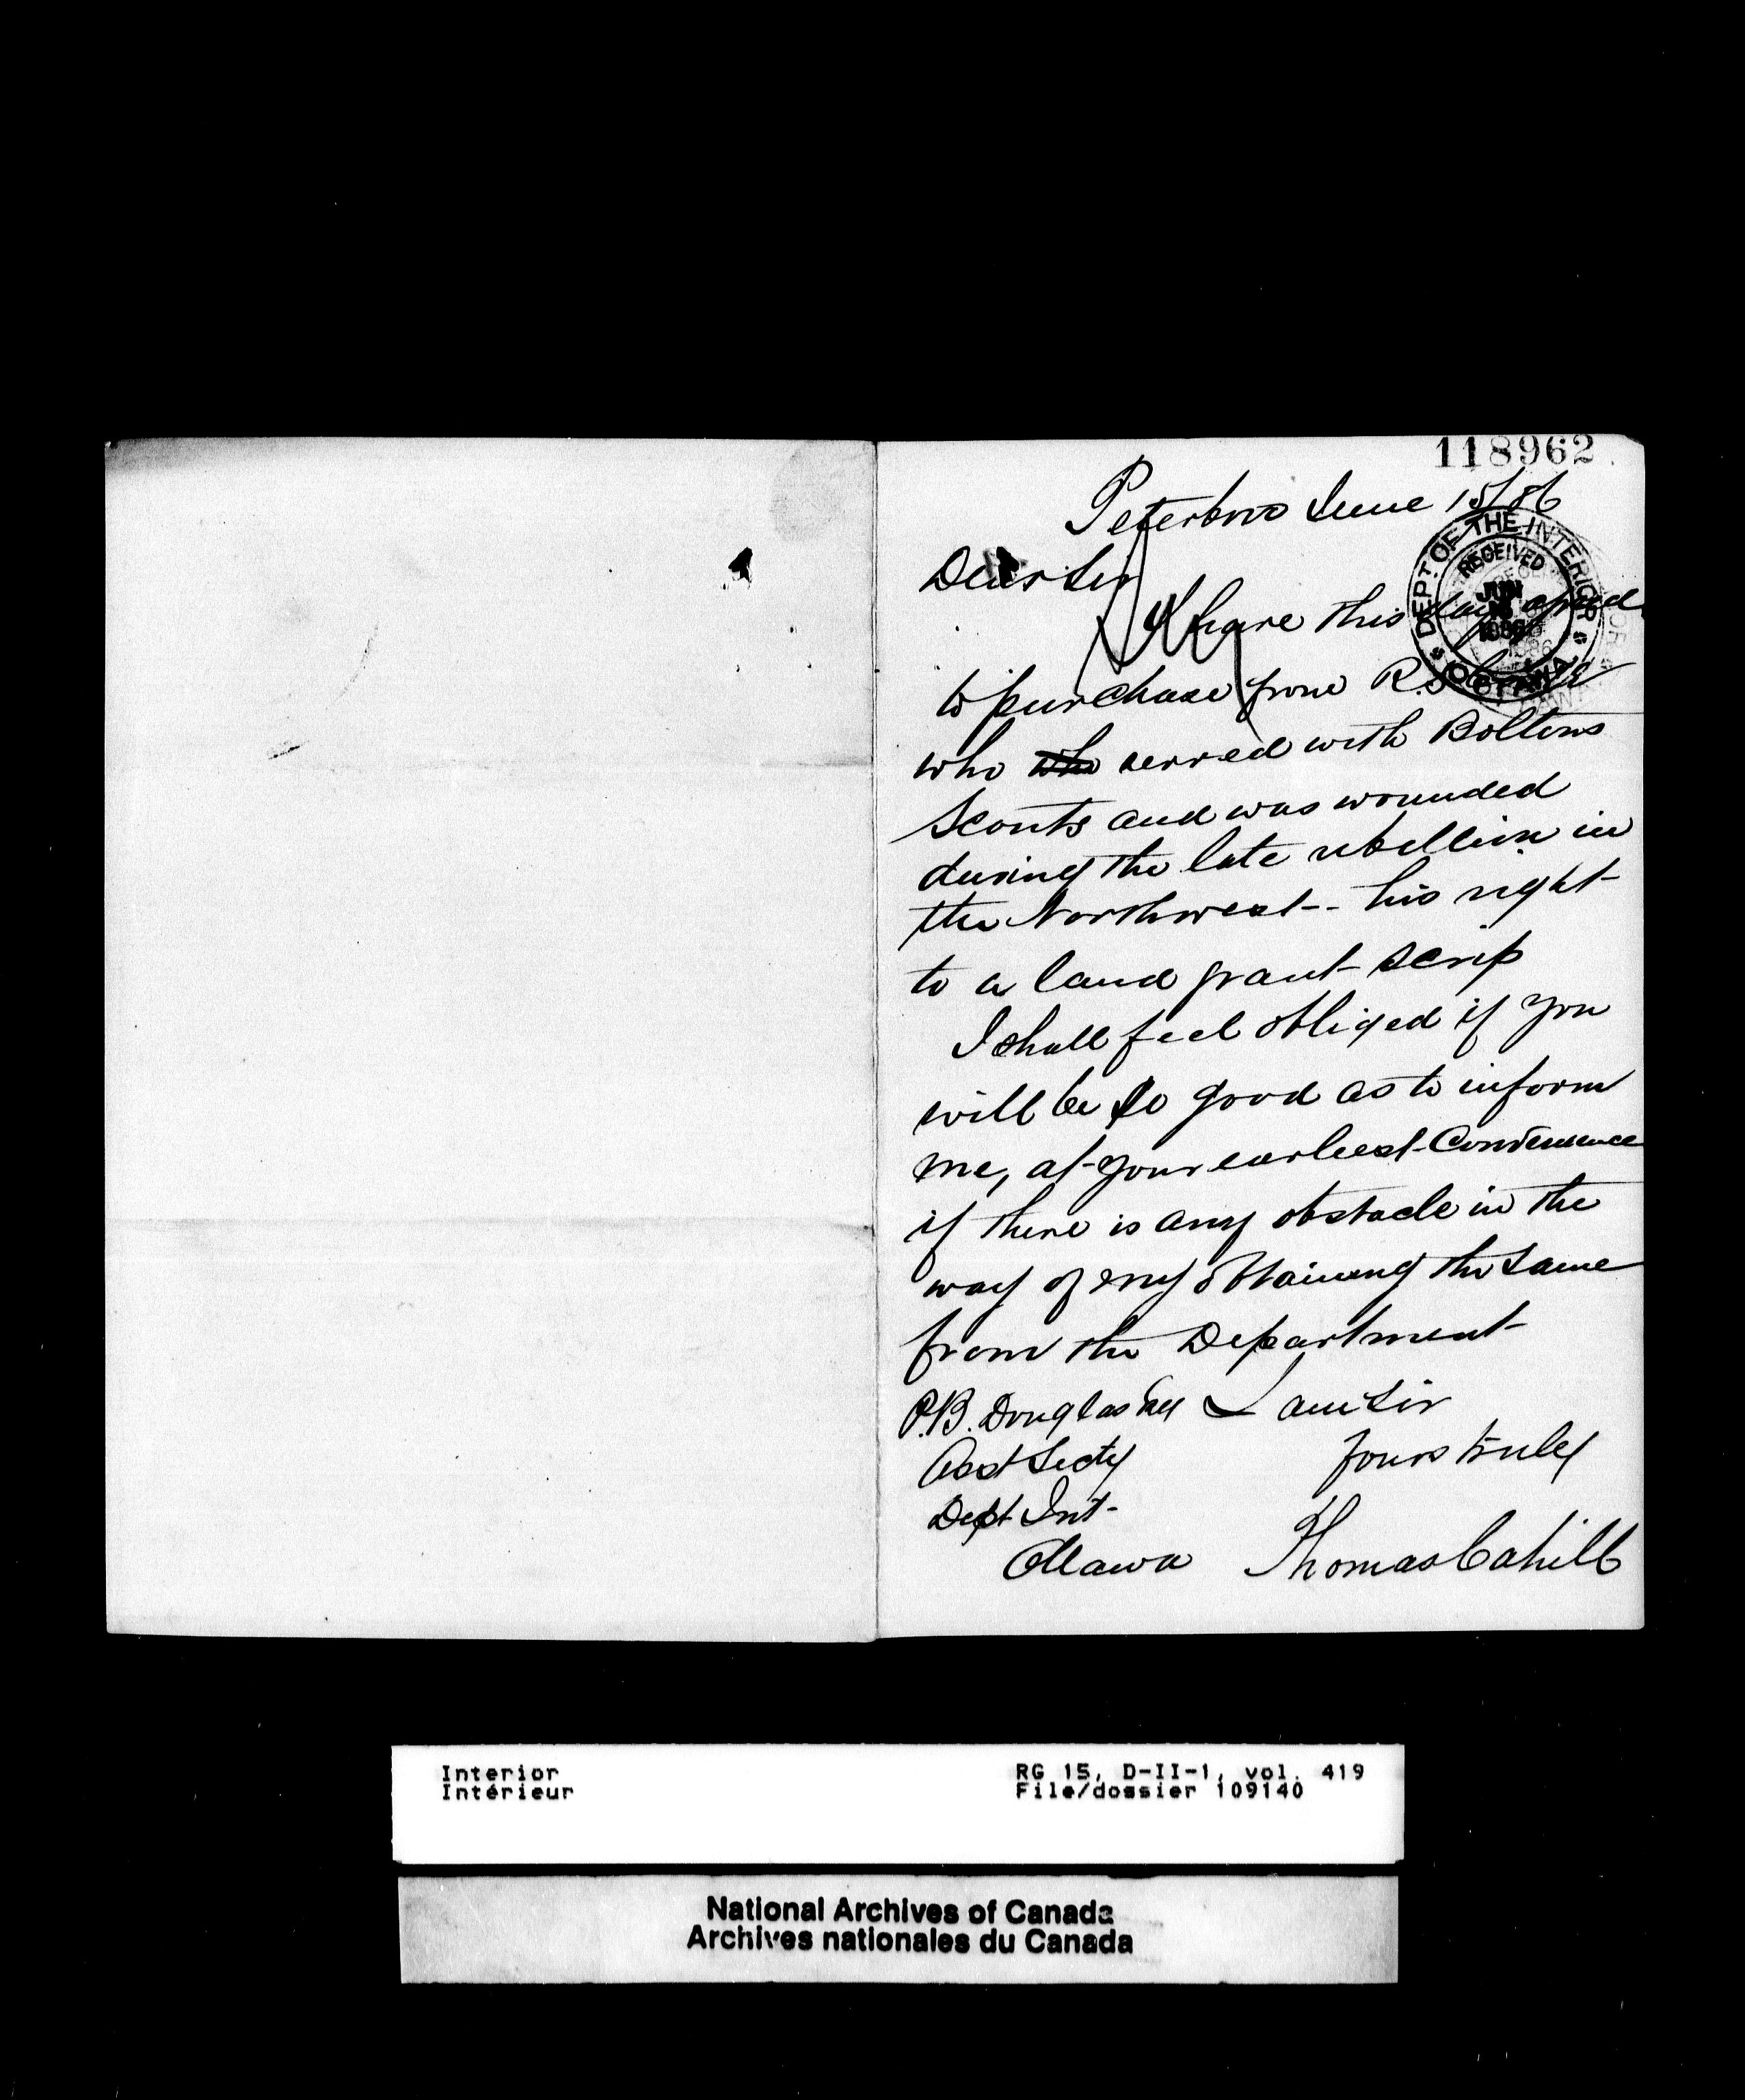 118962
Peterboro June 15/86
DEPT. OF THE INTERIOR
RECEIVED
JUN
1886
OTTAWA
Dear Sir
I have this day agreed
to purchase from R.
who who served with Boltons
Scouts and was wounded
during the late rebellion in
the Northwest - his right
to a land grant scrip
I shall feel obliged if you
will be so good as to inform
me, at your earliest Convenience
if there is any obstacle in the
way of my obtaining the same
from the Department
P.B. Douglas Esq I am Sir
Asst Secty Yours truly
Dept Int
Ottawa Thomas Cahill
Interior RG 15, D-II-1, vol. 419
Intérieur File/dossier 109140
National Archives of Canada
Archives nationales du Canada